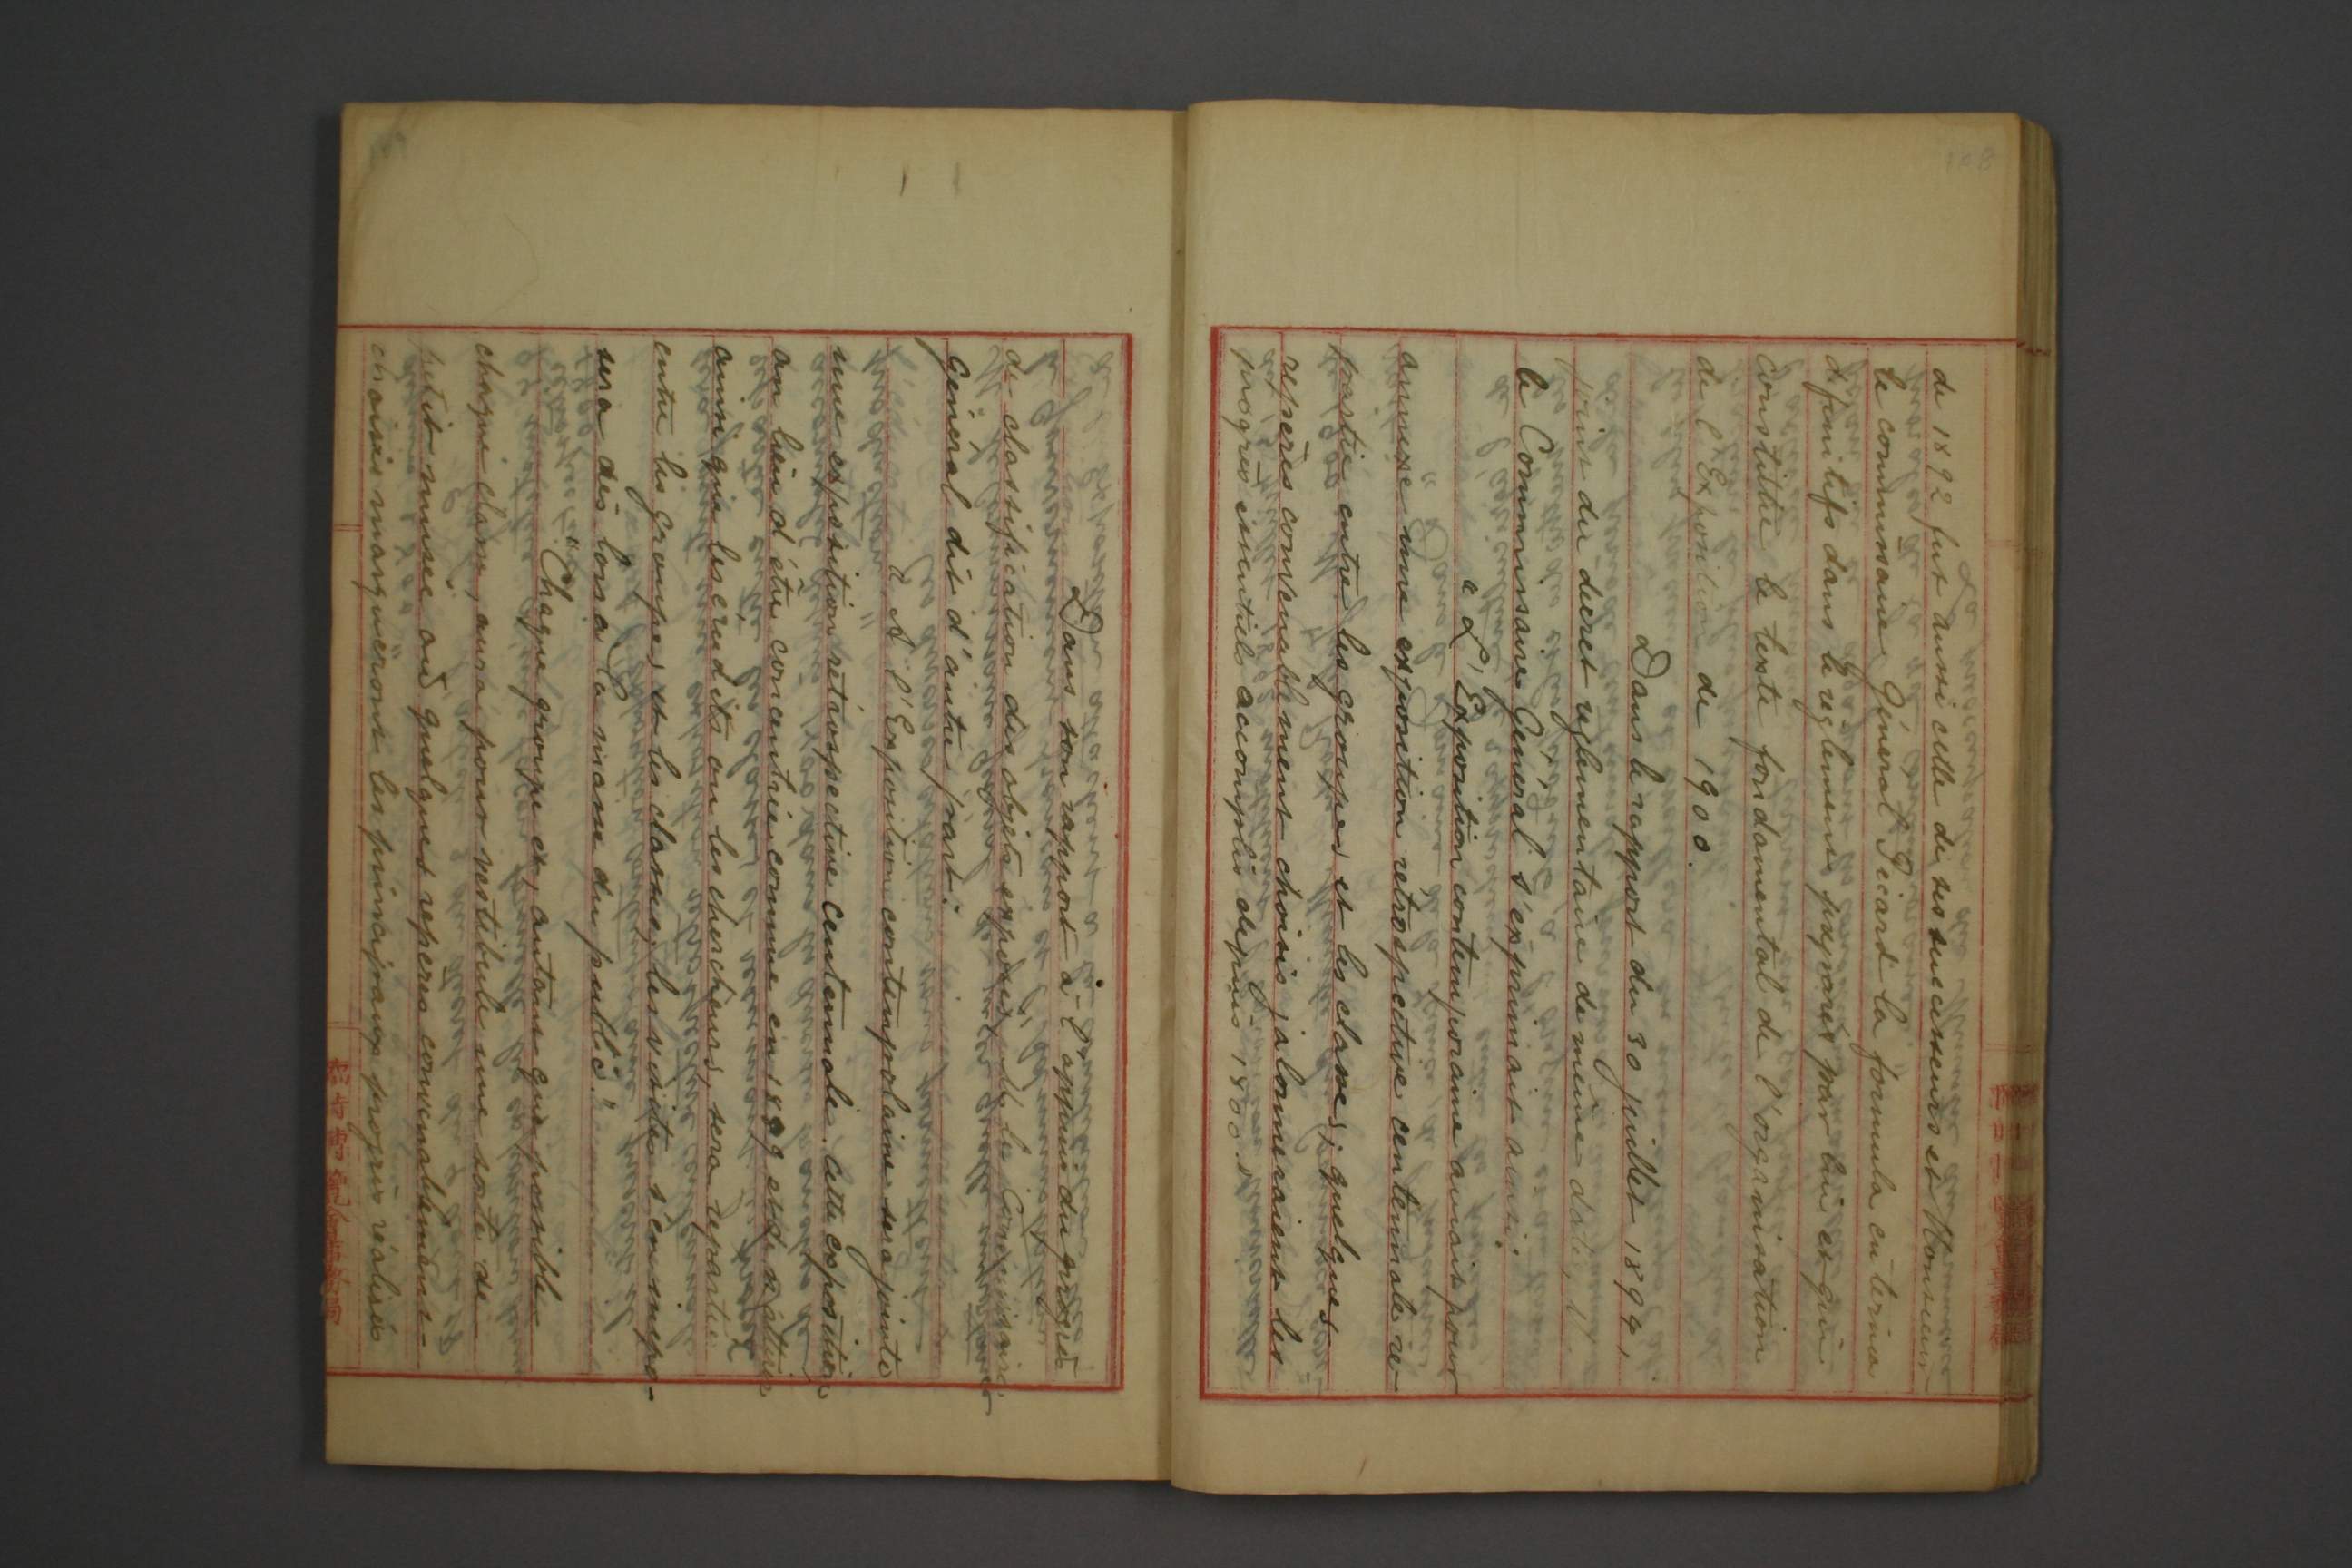 de 1892 fut aussi celle de ses successeurs et Monsieur
le commissaire Général Picard la formula en termes
définitifs dans le reglement preparés par lui et qui
constitue le texte fondamental de l'organisation
de l'Exposition de 1900.
Dans le rapport du 30 juillet 1894,
du decret reglementaire de même date,
le Commissaire Géneral s'exprimait ainsi:
"L'Exposition contemporaine aurait pour
annexe une exposition rétrospective centennale ré-
partie entre les groupes et les classes; quelques
repères convenablement choisis jalonneraient les
progrès essentiels accomplis depuis 1800."
Dans son rapport à l'appui du projet
de classification des objets exposés, le Commissaire
Général dit d'autre part:
"A l'Exposition contemporaine sera jointe
une exposition rétrospective centennale. Cette exposition
au lieu d'être concentrée comme en 1889 et de n'attirer
ainsi que les erudits ou les chercheurs, sera repartie
entre les groupes et les classes; les visites s'en impo-
sera dès lors à la masse du public."
"Chaque groupe et, autant que possible
chaque classe, aura pour vestibule une sorte de
petit musée où quelques reperes convenablement
choisis marqueront les principaux progrès réalisés
臨時博覧會事務局
108